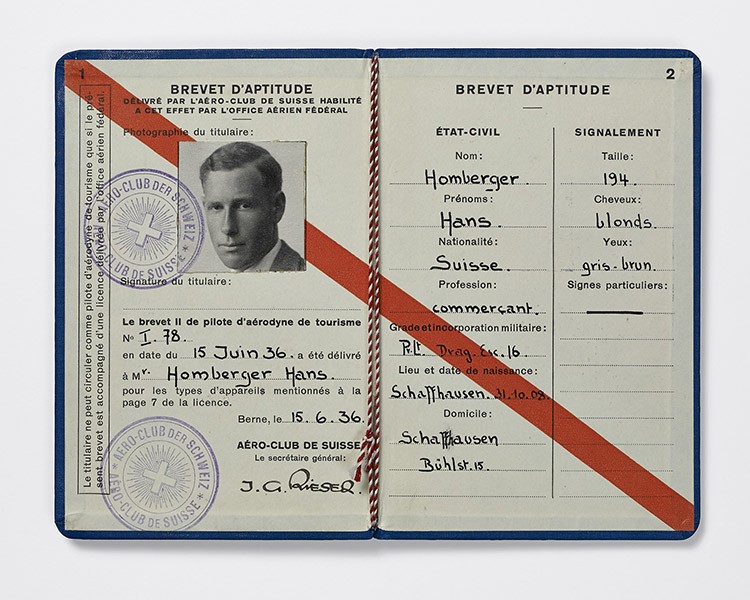 1
BREVET D'APTITUDE
DÉLIVRÉ PAR L'AÉRO-CLUB DE SUISSE HABILITÉ
A CET EFFET PAR L'OFFICE AÉRIEN FÉDÉRAL
Photographie du titulaire:
AÉRO-CLUB DER SCHWEIZ
AÉRO-CLUB DE SUISSE
Signature du titulaire:
Le brevet II de pilote d'aérodyne de tourisme
No I. 78.
en date du 15 Juin 36. a été délivré
à Mr. Homberger Hans.
pour les types d'appareils mentionnés à la
page 7 de la licence.
Berne, le 15.6.36.
AÉRO-CLUB DE SUISSE
Le secrétaire général:
J. G. RIESER.
AÉRO-CLUB DER SCHWEIZ
AÉRO-CLUB DE SUISSE
Le titulaire ne peut circuler comme pilote d'aérodyne de tourisme que si le pré-
sent brevet est accompagné d'une licence délivrée par l'office aérien fédéral.
2
BREVET D'APTITUDE
ÉTAT-CIVIL
Nom:
Homberger.
Prénoms:
Hans.
Nationalité:
Suisse.
Profession:
commerçant.
Grade et incorporation militaire:
Pr.Lt. Drag. Esc. 16.
Lieu et date de naissance:
Schaffhausen. 31.10.08.
Domicile:
Schaffhausen
Bühlst. 15.
SIGNALEMENT
Taille:
194.
Cheveux:
blonds.
Yeux:
gris-brun.
Signes particuliers: